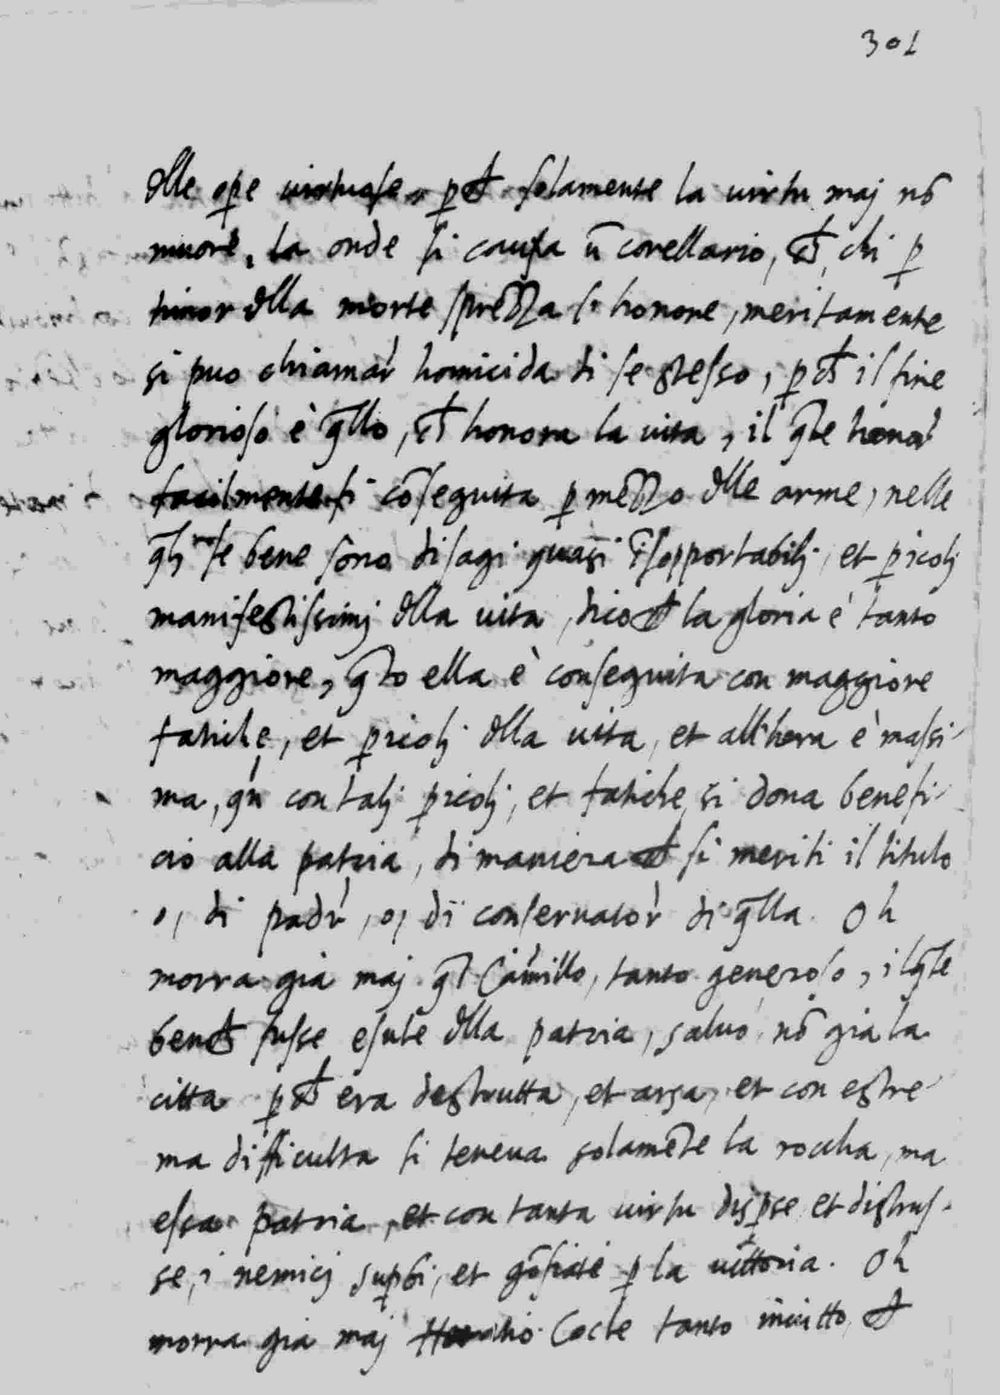 301
dlle oṗe virtuose, p̱ch̄ solamente la virtu maj nō
muore, la onde si causa ū corellario, ch̄, chi p̱
timor dlla morte sprezza l'honore, meritamente
si puo chiamar' homicida di se stesso, p̱ch̄ il fine
glorioso è q̄llo, ch̄ honora la vita, il q̄le honor'
facilmente si cōseguita p̱ mezzo dlle arme, nelle
q̄lj se bene sono disagi quasi ĩsopportabilj, et p̱icolj
manifestissimj dlla vita, dico ch̄ la gloria è tanto
maggiore, q̄to ella è conseguita con maggiore
fatiche, et p̱icolj dlla vita, et all'hora è massi-
ma, qn̄ con talj p̱icolj, et fatiche si dona benefi-
cio alla patria, di maniera ch̄ si meriti il titulo
o, di padr', o, di conservator' di q̄lla. Oh
morra gia maj q̄l Camillo, tanto generoso, il q̄le
bench̄ fusse esule dlla patria, salvò, nō gia la
citta p̱ch̄ era destrutta, et arsa, et con estre-
ma difficulta si teneva solamēte la roccha, ma
essa patria, et con tanta virtu disp̱se et distrus-
se, i nemicj sup̱bi, et gōfiati p̱ la vittoria. Oh
morra gia maj Horatio Cocle tanto invitto, ch̄